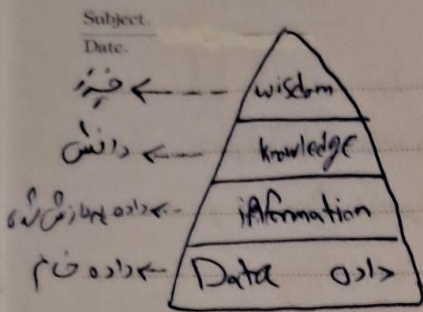 Subject.
Date.
wisdom
دانش ← knowledge
داده پردازش شده ← information
داده خام ← Data داده